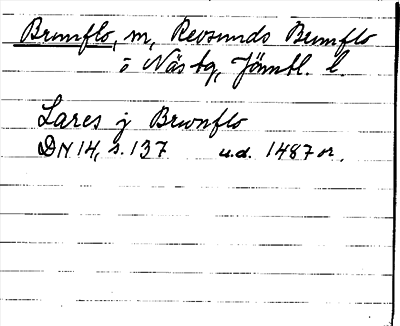 Brunflo, m, Revsunds Brunflo
o Näs tg, Jämtl. l.
Lares j Brwnflo
DN 14, s. 137 u.d. 1487 or.